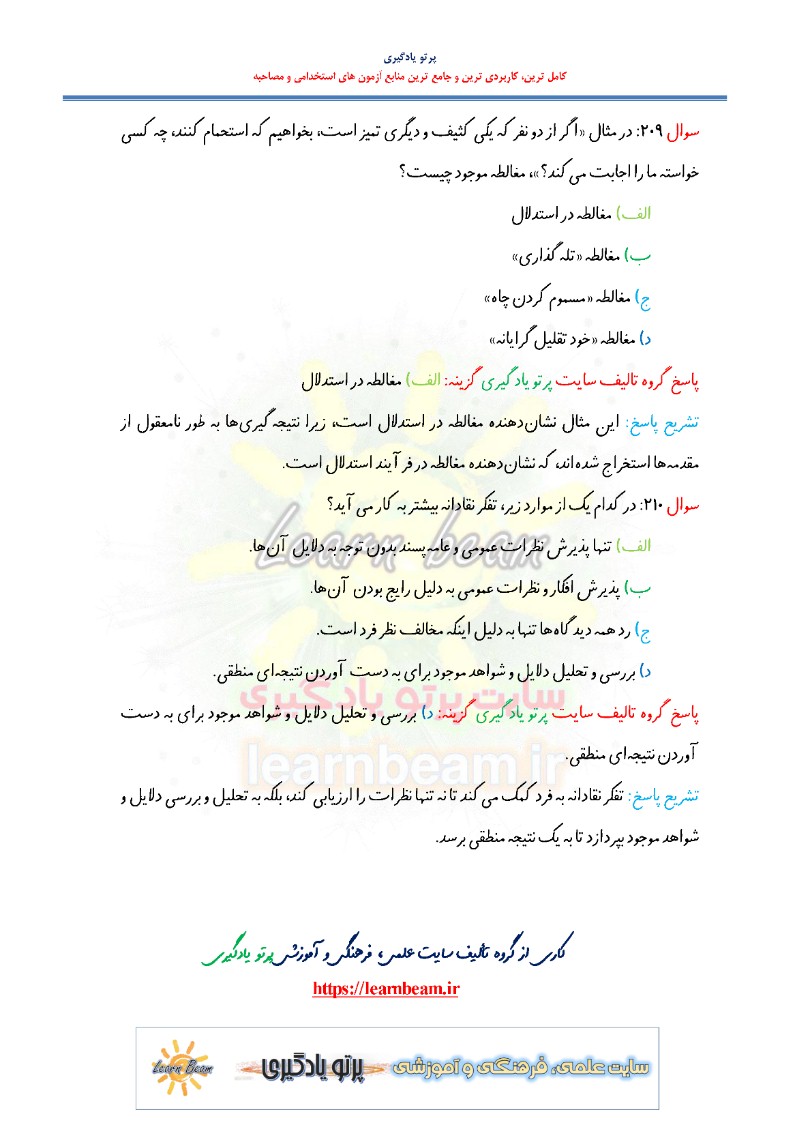 پرتو یادگیری
کامل ترین، کاربردی ترین و جامع ترین منابع آزمون های استخدامی و مصاحبه
سوال ۲۰۹: در مثال «اگر از دو نفر که یکی کثیف و دیگری تمیز است، بخواهیم که استحمام کنند، چه کسی
خواسته ما را اجابت می کند؟»، مغالطه موجود چیست؟
الف) مغالطه در استدلال
ب) مغالطه «تله گذاری»
ج) مغالطه «مسموم کردن چاه»
د) مغالطه «خود تقلیل گرایانه»
پاسخ گروه تالیف سایت پرتو یادگیری گزینه: الف) مغالطه در استدلال
تشریح پاسخ: این مثال نشان‌دهنده مغالطه در استدلال است، زیرا نتیجه‌گیری‌ها به طور نامعقول از
مقدمه‌ها استخراج شده‌اند، که نشان‌دهنده مغالطه در فرآیند استدلال است.
سوال ۲۱۰: در کدام یک از موارد زیر، تفکر نقادانه بیشتر به کار می آید؟
الف) تنها پذیرش نظرات عمومی و عامه‌پسند بدون توجه به دلایل آن‌ها.
ب) پذیرش افکار و نظرات عمومی به دلیل رایج بودن آن‌ها.
ج) رد همه دیدگاه‌ها تنها به دلیل اینکه مخالف نظر فرد است.
د) بررسی و تحلیل دلایل و شواهد موجود برای به دست آوردن نتیجه‌ای منطقی.
پاسخ گروه تالیف سایت پرتو یادگیری گزینه: د) بررسی و تحلیل دلایل و شواهد موجود برای به دست
آوردن نتیجه‌ای منطقی.
تشریح پاسخ: تفکر نقادانه به فرد کمک می کند تا نه تنها نظرات را ارزیابی کند، بلکه به تحلیل و بررسی دلایل و
شواهد موجود بپردازد تا به یک نتیجه منطقی برسد.
Learn beam
سایت پرتو یادگیری
learnbeam.ir
کاری از گروه تألیف سایت علمی، فرهنگی و آموزشی پرتو یادگیری
https://learnbeam.ir
سایت علمی، فرهنگی و آموزشی پرتو یادگیری Learn Beam